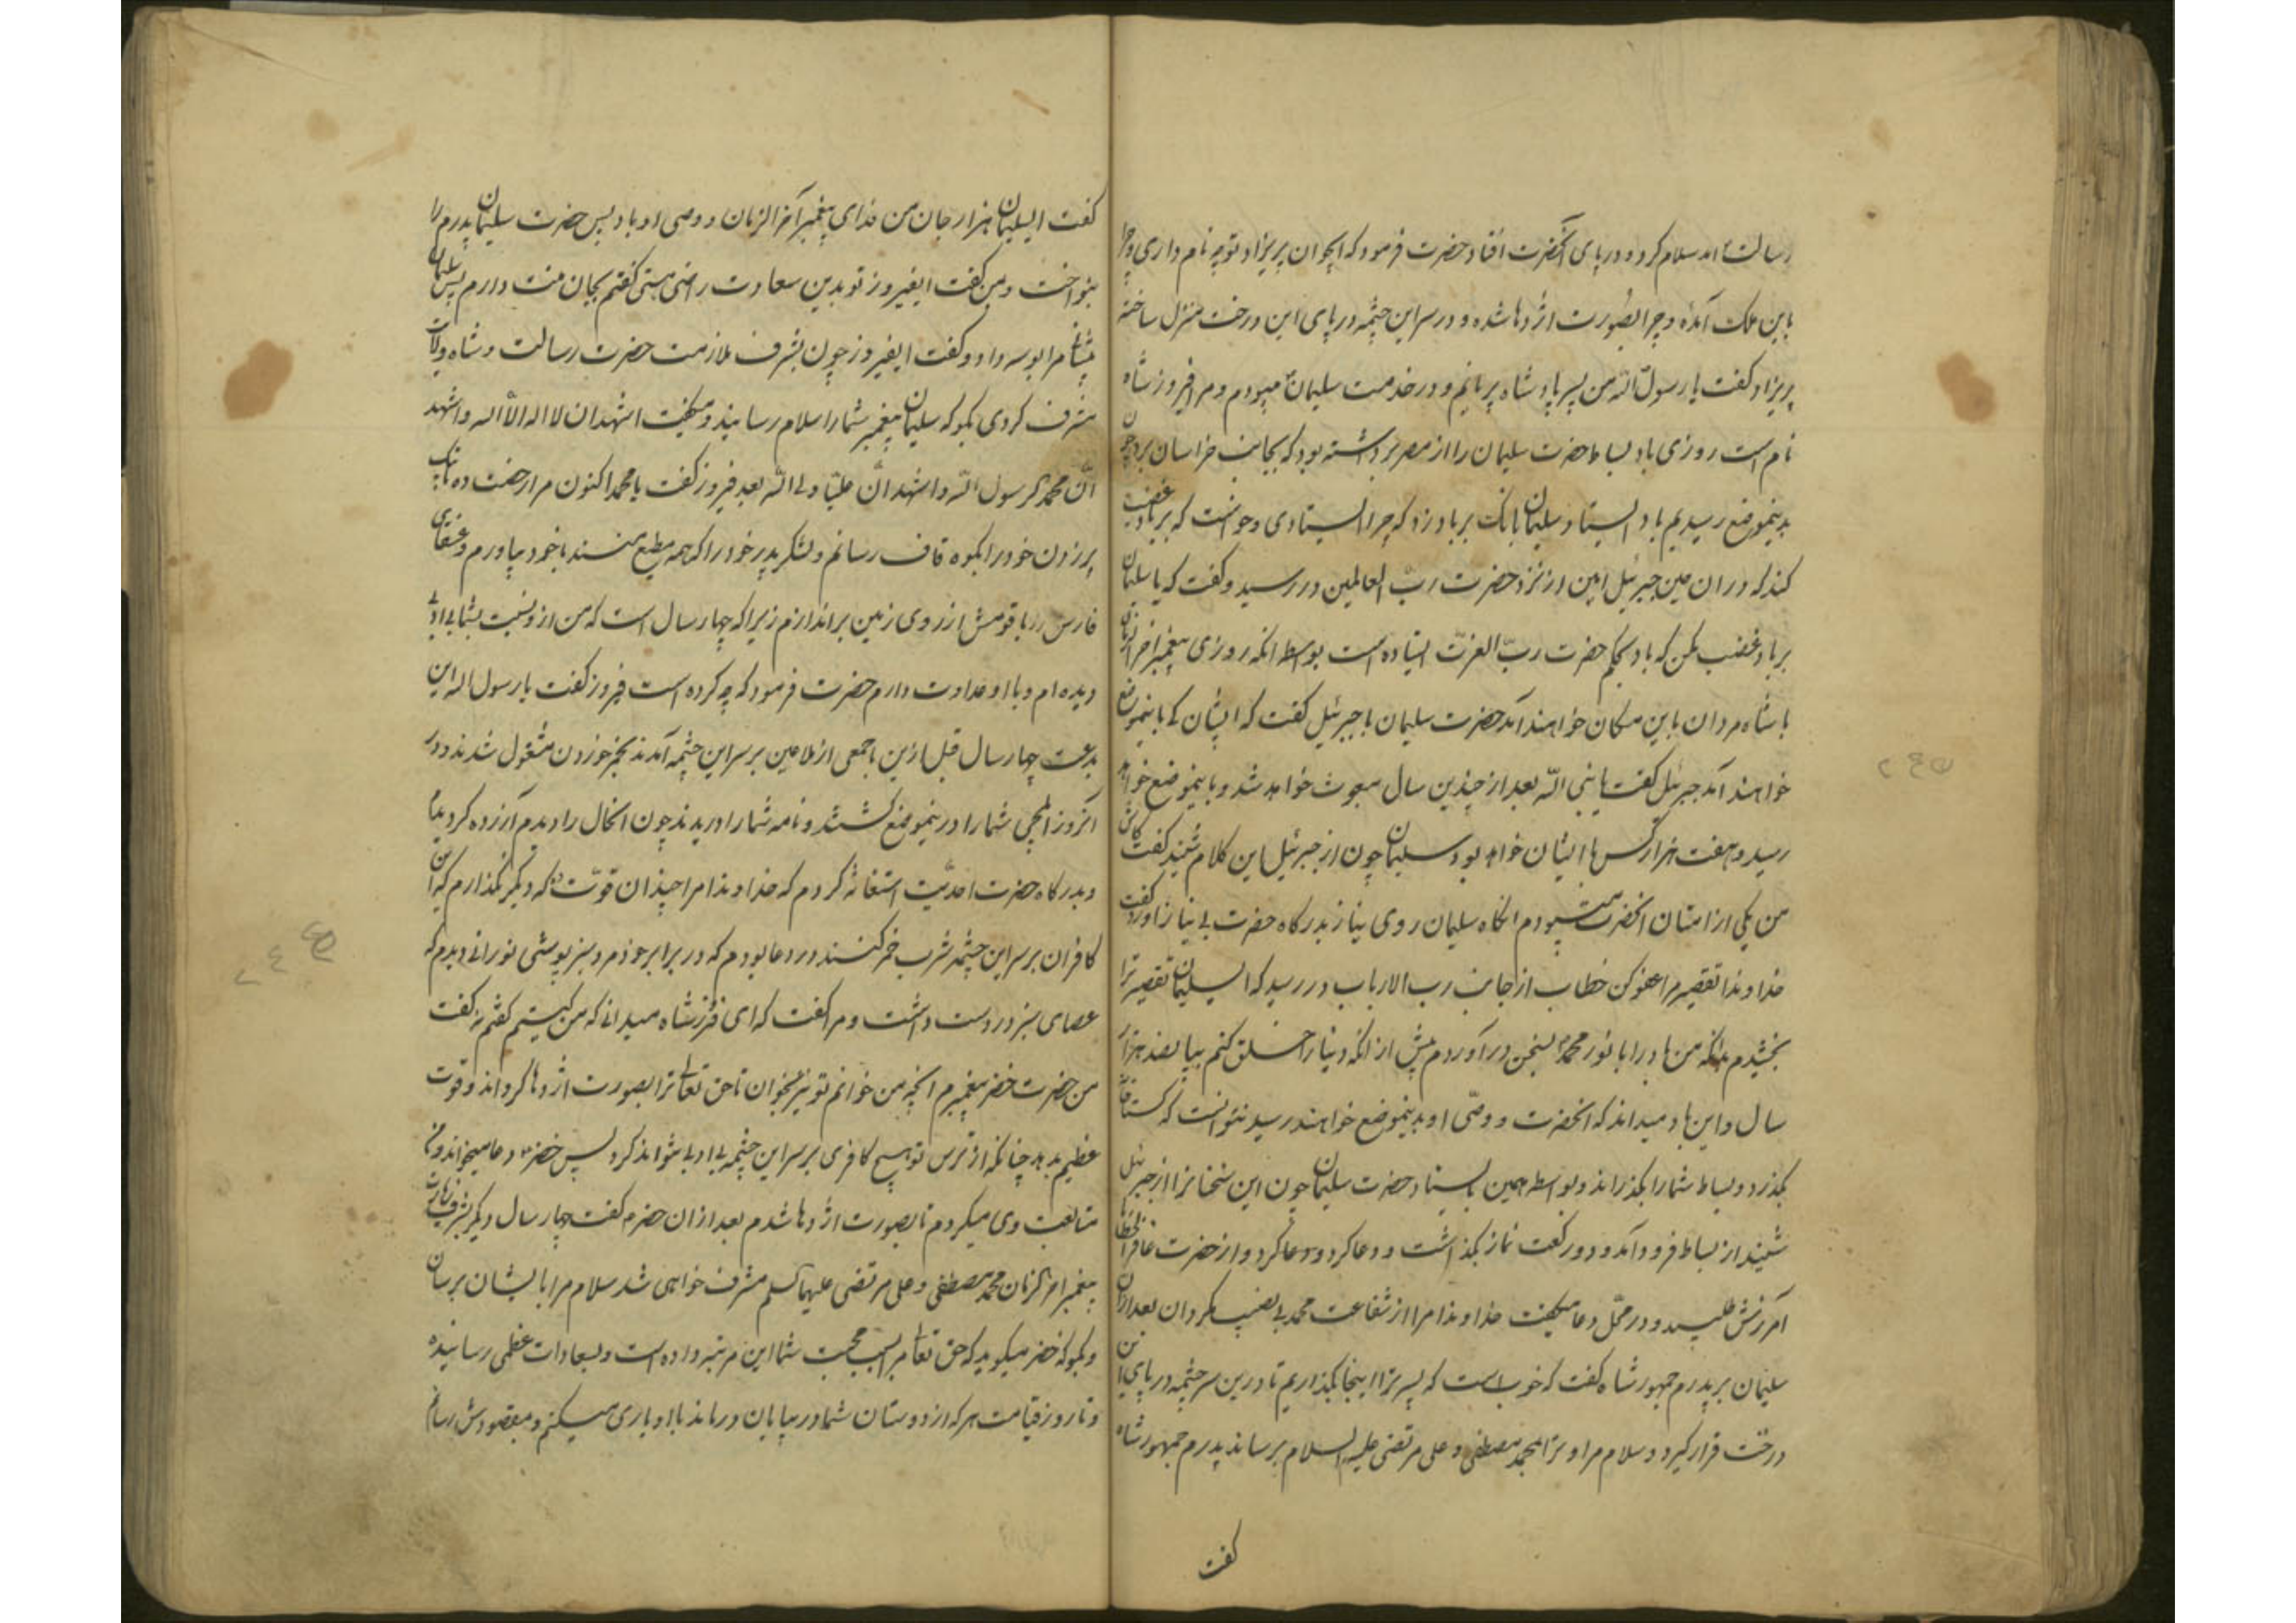 رسالت آمد سلام کرد و در پای آنحضرت افتاد حضرت فرمود که ایجوان پریزاد تو چه نام داری و چرا
باین ملک آمدهٔ و چرا بصورت اژدها شده و در سر این چشمه در پای این درخت منزل ساختهٔ
پریزاد گفت یا رسول الله من پسر پادشاه پریانیم و در خدمت سلیمان میبودم و مرا فیروز شاه
نام است روزی باد بساط حضرت سلیمان را از مصر برداشته بود که بجانب خراسان برد چون
بدینموضع رسیدیم باد ایستاد سلیمان بانک بر باد زد که چرا ایستادی و خواست که بر باد غضب
کند که در ان حین جبرئیل امین از نزد حضرت ربّ العالمین در رسید و گفت که یا سلیمان
بر باد غضب مکن که باد بحکم حضرت ربّ العزّت ایستاده است بواسطه انکه روزی پیغمبر اخر الزمان
با شاه مردان باین مکان خواهند آمد حضرت سلیمان با جبرئیل گفت که ایشان کی باینموضع
خواهند آمد جبرئیل گفت یا نبی الله بعد از چندین سال مبعوث خواهد شد و باینموضع خواهد
رسید و هفت هزار کس با ایشان خواهد بود سلیمان چون از جبرئیل این کلام شنید گفت کاش
من یکی از امتان آنحضرت میبودم انگاه سلیمان روی نیاز بدرگاه حضرت بی نیاز آورد و گفت
خداوندا تقصیر مرا عفو کن خطاب از جانب رب الارباب در رسید که ای سلیمان تقصیر ترا
بخشیدم بدانکه من باد را با نور محمد بسخن در آوردم پیش از انکه دنیا را خلق کنم بپانصد هزار
سال و این باد میداند که انحضرت و وصّی او بدینموضع خواهند رسید نتوانست که گستاخ
بگذرد و بساط شمارا بگذراند و بواسطه همین بایستاد حضرت سلیمان چون این سخنانرا از جبرئیل
شنید از بساط فرود آمد و دو رکعت نماز بگذاشت و دعا کرد و دعا کرد و از حضرت غافر الخطایا
آمرزش طلبید و در محلّ دعا میگفت خداوندا مرا از شفاعت محمد بی نصیب مگردان بعد از ان
سلیمان بر پدرم جمهور شاه گفت که خوب است که پسر ترا اینجا بگذاریم تا درین سر چشمه در پای این
درخت قرار گیرد و سلام مرا و ترا بمحمد مصطفی و علی مرتضی علیه السلام برساند پدرم جمهور شاه
گفت
گفت ای سلیمان هزار جان من فدای پیغمبر آخر الزمان و وصی او باد پس حضرت سلیمان پدرم را
بنواخت و بمن گفت ایفیروز تو بدین سعادت راضی هستی گفتم بجان منت دارم پس سلیمان
پیشانی مرا بوسه داد و گفت ایفیروز چون بشرف ملازمت حضرت رسالت و شاه ولایت
مشرف گردی بگو که سلیمان پیغمبر شمارا سلام رسانید و میگفت اشهد ان لا اله الا الله و اشهد
انّ محمداً رسول الله و اشهد انّ علیّا ولی الله بعد فیروز گفت یا محمد اکنون مرا رخصت ده تا بیک
پر زدن خود را بکوه قاف رسانم و لشکر پدر خود را که همه مطیع منند با خود بیاورم و عنقای
فارس را با قومش از روی زمین براندازم زیرا که چهار سال است که من از و نسبت بشما بی ادبی
دیده ام و با او عداوت دارم حضرت فرمود که چه کرده است فیروز گفت یا رسول الله این
بدعت چهار سال قبل ازین با جمعی از ملاعین بر سر این چشمه آمدند بخمر خوردن مشغول شدند و در
انروز ایلچی شمارا درینموضع کشتند و نامه شمارا دریدند چون انحال را دیدم آزرده گردیدم
و بدرگاه حضرت احدیّت استغاثه کردم که خداوندا مرا چندان قوّت ده که دیگر نگذارم که این
کافران بر سر این چشمه شرب خمر کنند در دعا بودم که در برابر خود مرد سبز پوشی نورانی دیدم که
عصای سبز در دست داشت و مرا گفت که ای فیروز شاه میدانی که من کیستم گفتم نه گفت
من حضرت خضر پیغمبرم انچه من خوانم تو نیز بخوان تا حق تعالی ترا بصورت اژدها گرداند و قوت
عظیم بدهد چنانکه از ترس تو هیچ کافری بر سر این چشمه بی ادبی نتواند کرد پس خضر دعا میخواند و من
متابعت وی میکردم تا بصورت اژدها شدم بعد از ان خضر گفت چهار سال دیگر بشرف زیارت
پیغمبر آخر الزمان محمد مصطفی و علی مرتضی علیهما السلم مشرف خواهی شد سلام مرا بایشان برسان
و بگو که خضر میگوید که حق تعالی مرا بسبب محبت شما این مرتبه داده است و بسعادات عظمی رسانیده
و تا روز قیامت هر که از دوستان شما در بیابان درماند با او یاری میکنم و بمقصودش رسانم